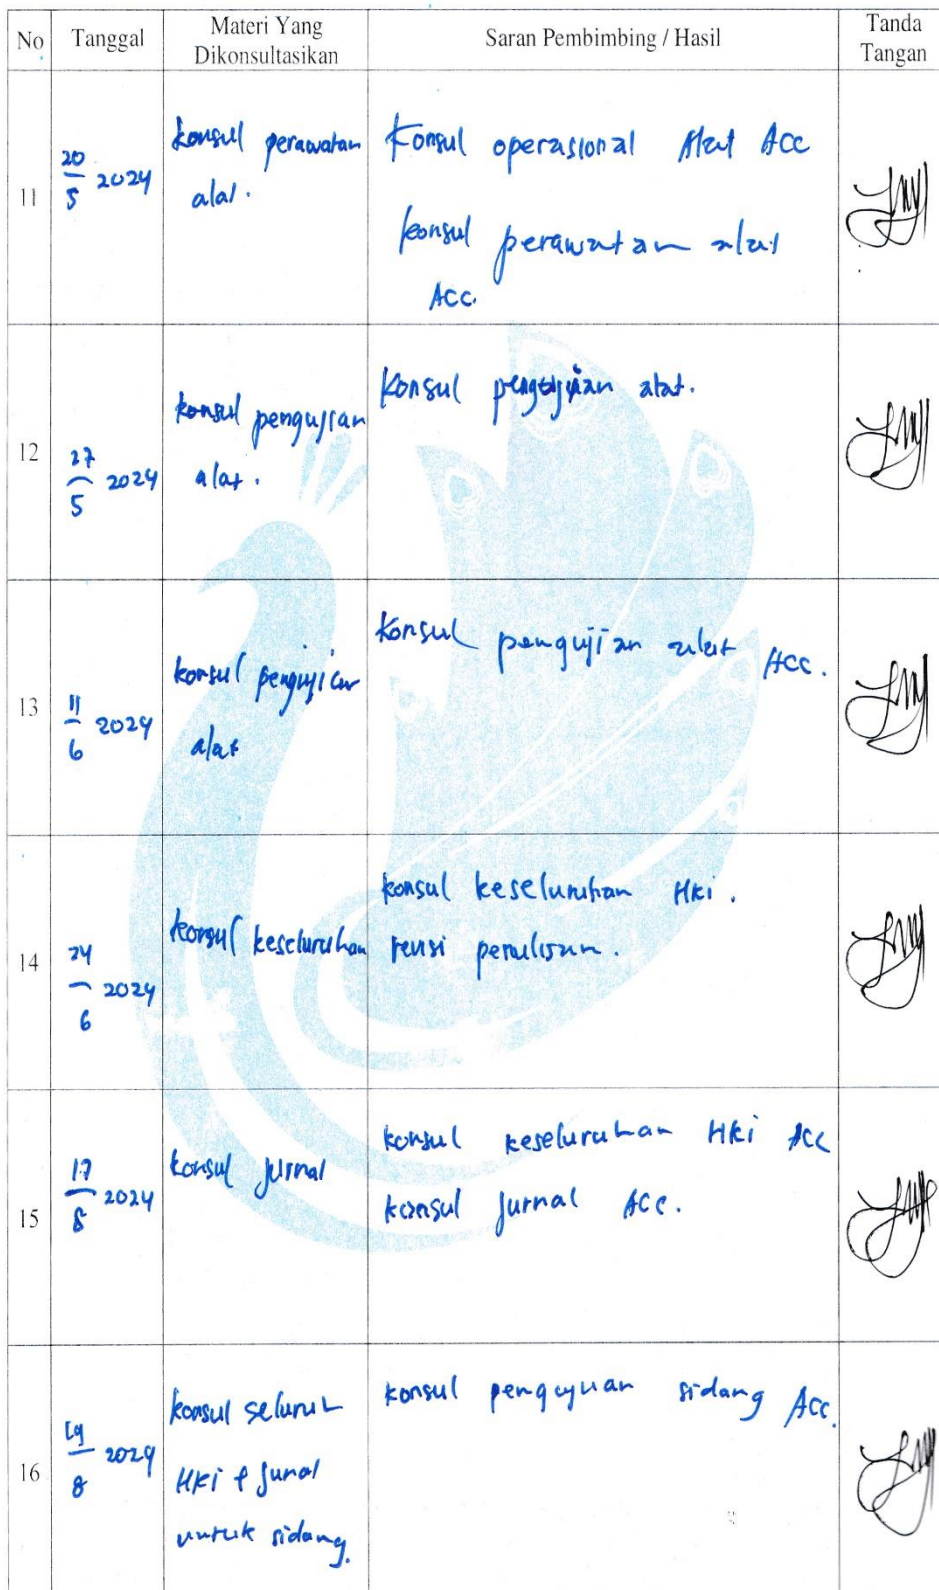 No Tanggal Materi Yang Dikonsultasikan Saran Pembimbing / Hasil Tanda Tangan
11
20/5 2024
konsul perawatan
alat.
Konsul operasional Alat ACC
konsul perawatan alat
ACC.
12
27/5 2024
konsul pengujian
alat.
Konsul pengujian alat.
13
11/6 2024
konsul pengujian
alat
Konsul pengujian alat ACC.
14
24/6 2024
konsul keseluruhan
konsul keseluruhan HKi.
revisi penulisan.
15
17/8 2024
konsul jurnal
konsul keseluruhan HKi ACC
konsul jurnal ACC.
16
19/8 2024
konsul seluruh
HKi & Jurnal
untuk sidang.
konsul pengajuan sidang ACC.